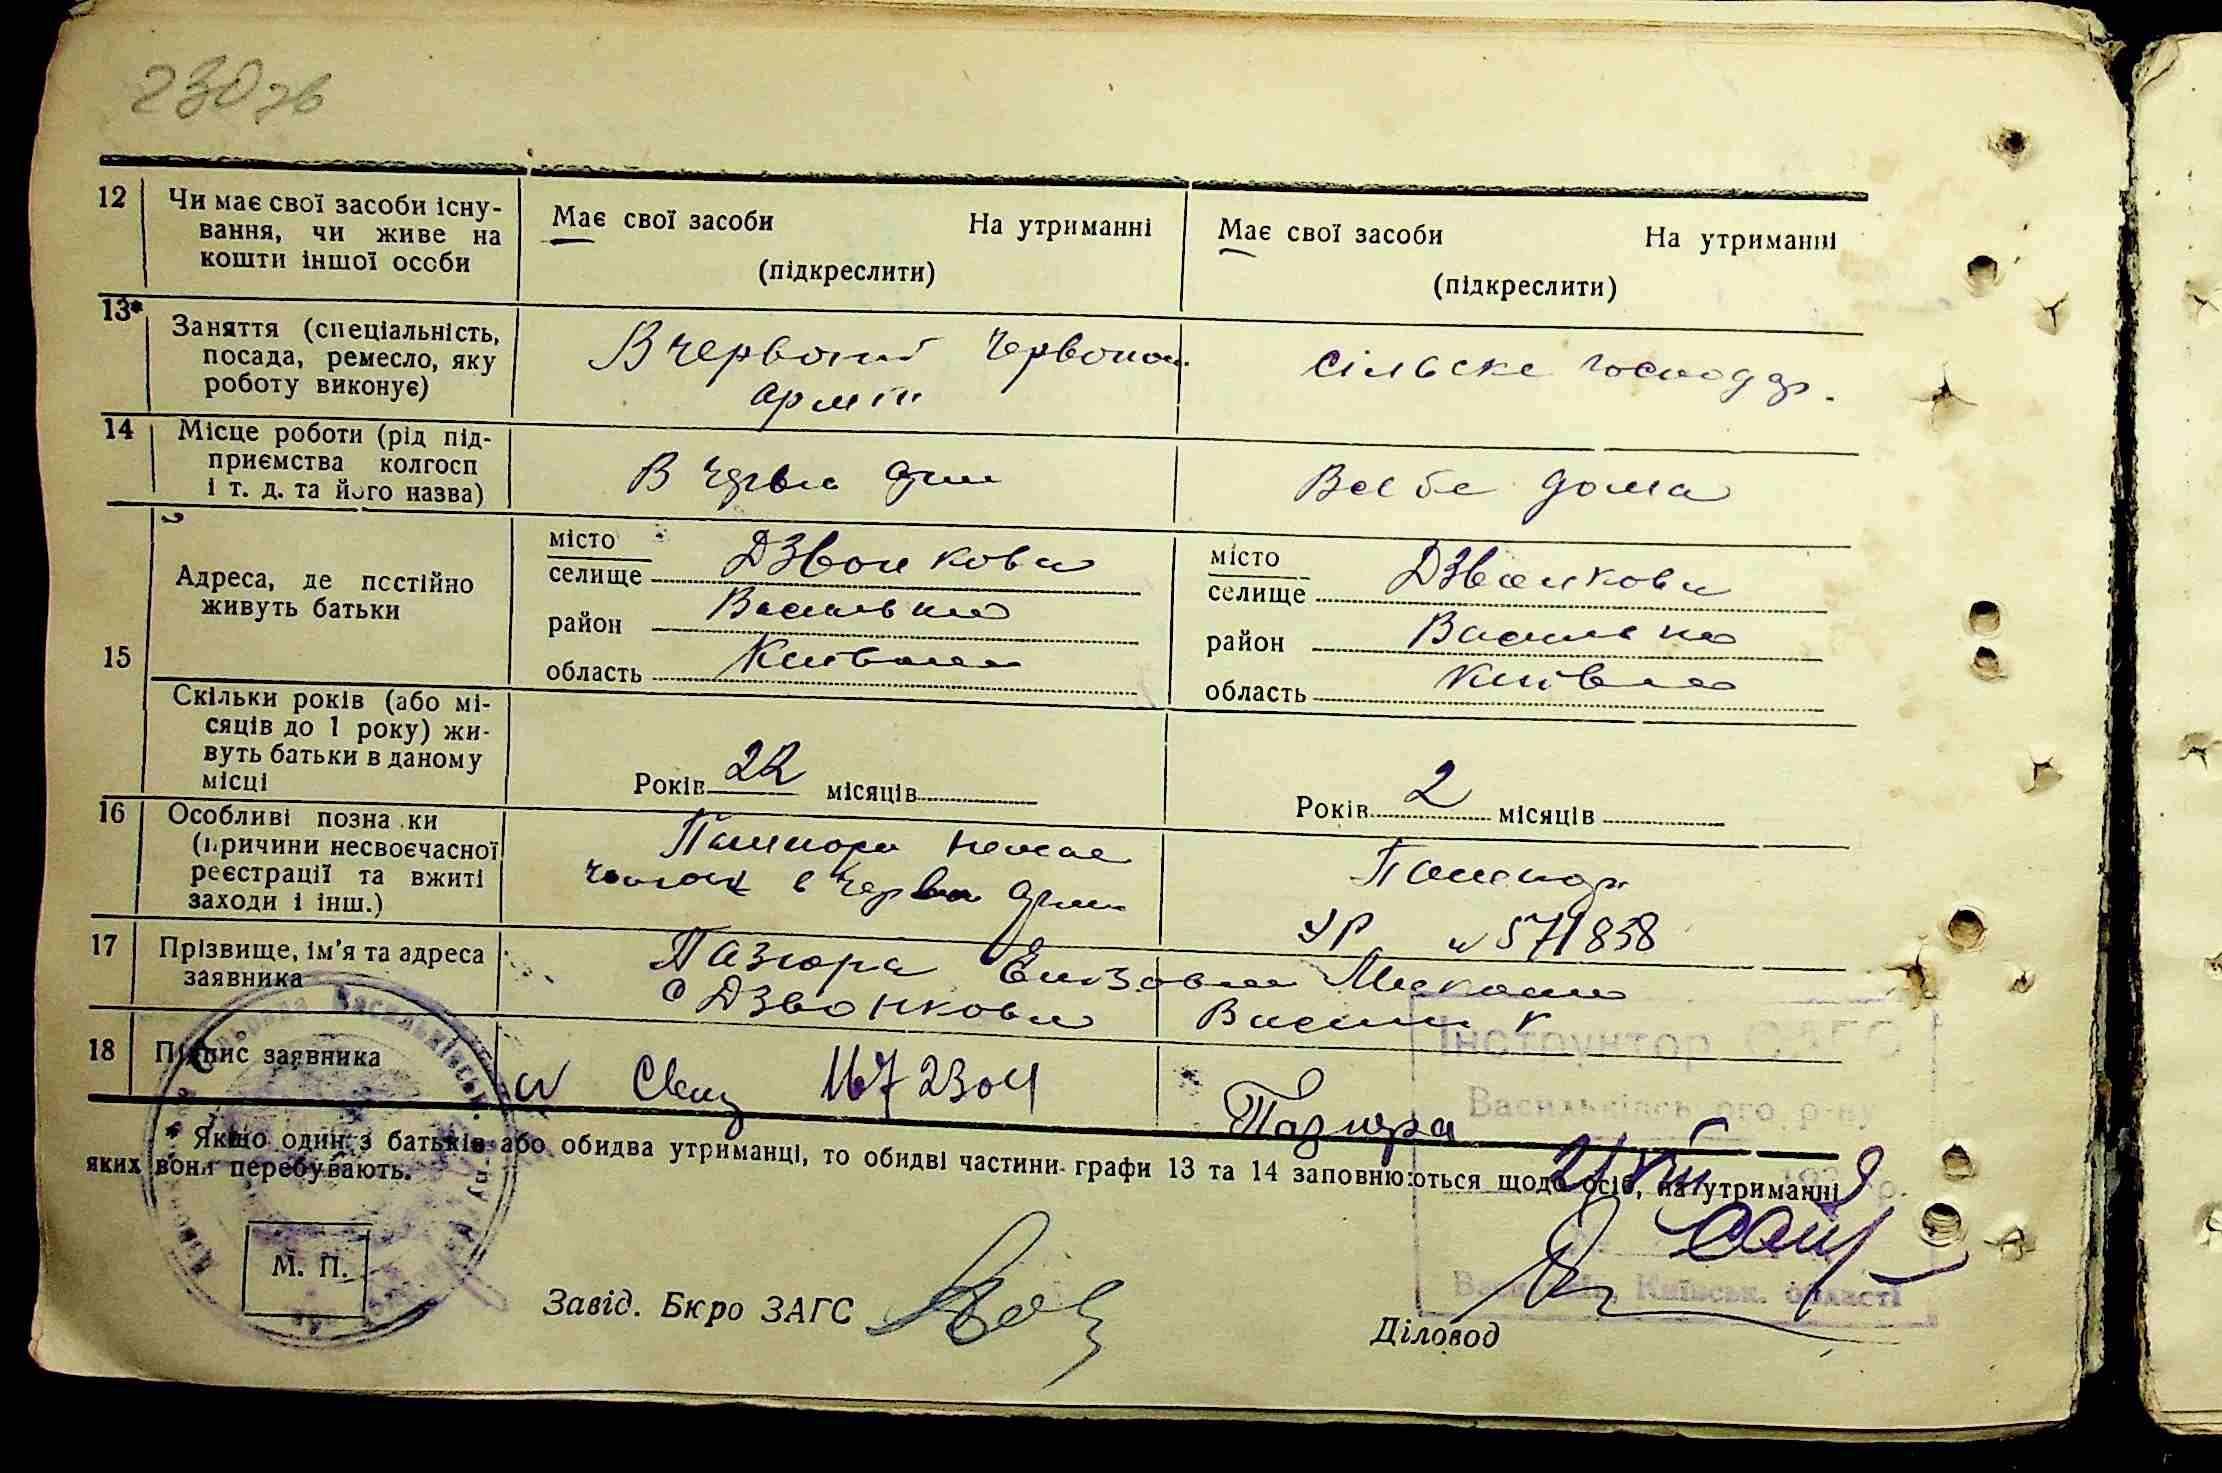 230зв
12 Чи має свої засоби існу-
вання, чи живе на
кошти іншої особи
Має свої засоби На утриманні
(підкреслити)
Має свої засоби На утриманні
(підкреслити)
13* Заняття (спеціальність,
посада, ремесло, яку
роботу виконує)
В червоній
армії
сільське господар.
14 Місце роботи (рід під-
приємства колгосп
і т. д. та його назва)
В черв армії
В себе дома
15 Адреса, де постійно
живуть батьки
місто
селище Дзвонкова
район Васильків
область Київська
місто
селище Дзвонкова
район Васильків
область Київська
Скільки років (або мі-
сяців до 1 року) жи-
вуть батьки в даному
місці
Років 22 місяців
Років 2 місяців
16 Особливі позна ки
(причини несвоєчасної
реєстрації та вжиті
заходи і інш.)
Пашпорт немає
чоловік в черв армії
Пашпорт
УР № 571838
17 Прізвище, ім'я та адреса
заявника
Пазюра
с Дзвонкова Васильк
18 Підпис заявника
№ 1672304
Пазюра
* Якщо один з батьків або обидва утриманці, то обидві частини графи 13 та 14 заповнюються щодо осіб, на утриманні
яких вони перебувають.
Інструктор
Васильківського р-ну
21/VIII 1939 р.
Васильків, Київськ. області
М. П.
Завід. Бюро ЗАГС
Діловод